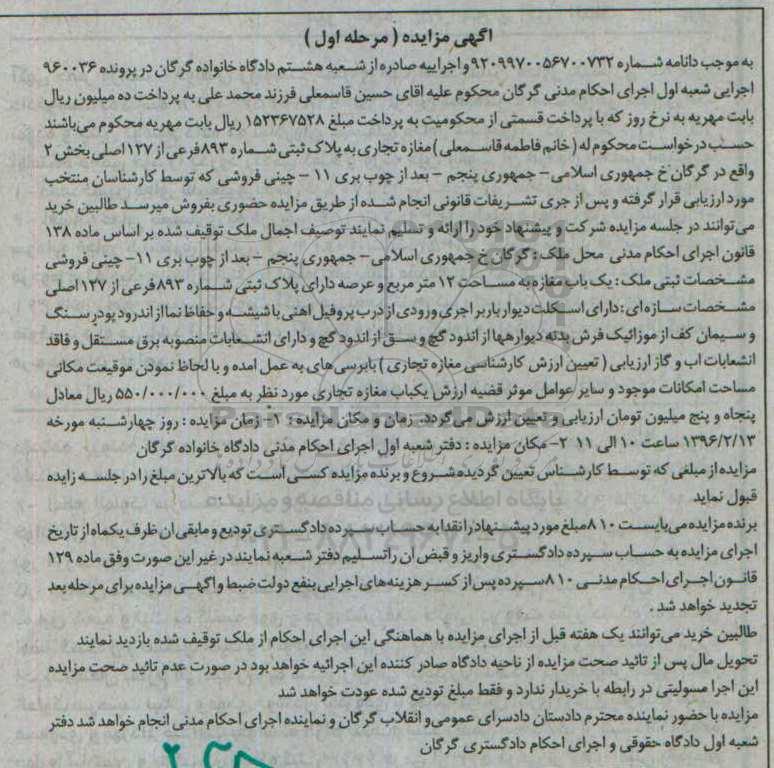 آگهی مزایده ( مرحله اول )
به موجب دادنامه شماره ۹۲۰۹۹۷۰۰۵۶۷۰۰۷۳۲ و اجراییه صادره از شعبه هشتم دادگاه خانواده گرگان در پرونده ۹۶۰۰۳۶
اجرایی شعبه اول اجرای احکام مدنی گرگان محکوم علیه اقای حسین قاسمعلی فرزند محمد علی به پرداخت ده میلیون ریال
بابت مهریه به نرخ روز که با پرداخت قسمتی از محکومیت به پرداخت مبلغ ۱۵۲۳۶۷۵۲۸ ریال بابت مهریه محکوم می‌باشند
حسب درخواست محکوم له ( خانم فاطمه قاسمعلی ) مغازه تجاری به پلاک ثبتی شماره ۸۹۳ فرعی از ۱۲۷ اصلی بخش ۲
واقع در گرگان خ جمهوری اسلامی – جمهوری پنجم – بعد از چوب بری ۱۱ – چینی فروشی که توسط کارشناسان منتخب
مورد ارزیابی قرار گرفته و پس از جری تشریفات قانونی انجام شده از طریق مزایده حضوری بفروش میرسد طالبین خرید
می‌توانند در جلسه مزایده شرکت و پیشنهاد خود را ارائه و تسلیم نمایند توصیف اجمال ملک توقیف شده بر اساس ماده ۱۳۸
قانون اجرای احکام مدنی محل ملک : گرگان خ جمهوری اسلامی – جمهوری پنجم – بعد از چوب بری ۱۱– چینی فروشی
مشخصات ثبتی ملک : یک باب مغازه به مساحت ۱۲ متر مربع و عرصه دارای پلاک ثبتی شماره ۸۹۳ فرعی از ۱۲۷ اصلی
مشخصات سازه ای : دارای اسکلت دیوار باربر اجری ورودی از درب پروفیل اهنی با شیشه و حفاظ نما از اندرود پودر سنگ
و سیمان کف از موزائیک فرش بدنه دیوارهها از اندود گچ و سق از اندود گچ و دارای انشعابات منصوبه برق مستقل و فاقد
انشعابات اب و گاز ارزیابی ( تعیین ارزش کارشناسی مغازه تجاری ) بابرسی های به عمل امده و با لحاظ نمودن موقیعت مکانی
مساحت امکانات موجود و سایر عوامل موثر قضیه ارزش یکباب مغازه تجاری مورد نظر به مبلغ ۵۵۰/۰۰۰/۰۰۰ ریال معادل
پنجاه و پنج میلیون تومان ارزیابی و تعیین ارزش می‌گردد. زمان و مکان مزایده : ۱- زمان مزایده : روز چهارشنبه مورخه
۱۳۹۶/۲/۱۳ ساعت ۱۰ الی ۱۱ ۲- مکان مزایده : دفتر شعبه اول اجرای احکام مدنی دادگاه خانواده گرگان
مزایده از مبلغی که توسط کارشناس تعیین گردیده شروع و برنده مزایده کسی است که بالاترین مبلغ را در جلسه زایده
قبول نماید
برنده مزایده می‌بایست ۱۰٪ مبلغ مورد پیشنهاد را نقدا به حساب سپرده دادگستری تودیع و مابقی ان ظرف یکماه از تاریخ
اجرای مزایده به حساب سپرده دادگستری واریز و قبض ان را تسلیم دفتر شعبه نمایند در غیر این صورت وفق ماده ۱۲۹
قانون اجرای احکام مدنی ۱۰٪ سپرده پس از کسر هزینه های اجرایی بنفع دولت ضبط و اگهی مزایده برای مرحله بعد
تجدید خواهد شد .
طالبین خرید می‌توانند یک هفته قبل از اجرای مزایده با هماهنگی این اجرای احکام از ملک توقیف شده بازدید نمایند
تحویل مال پس از تائید صحت مزایده از ناحیه دادگاه صادر کننده این اجرائیه خواهد بود در صورت عدم تائید صحت مزایده
این اجرا مسولیتی در رابطه با خریدار ندارد و فقط مبلغ تودیع شده عودت خواهد شد
مزایده با حضور نماینده محترم دادستان دادسرای عمومی و انقلاب گرگان و نماینده اجرای احکام مدنی انجام خواهد شد دفتر
شعبه اول دادگاه حقوقی و اجرای احکام دادگستری گرگان